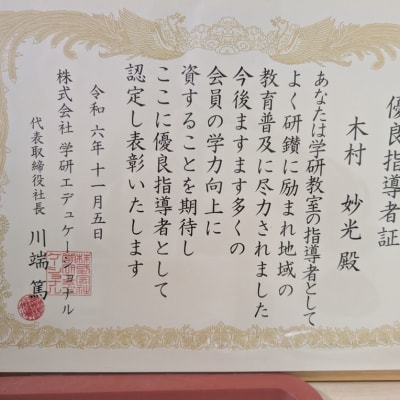 優良指導者証
木村 妙光 殿
あなたは学研教室の指導者として
よく研鑽に励まれ地域の
教育普及に尽力されました
今後ますます多くの
会員の学力向上に
資することを期待し
ここに優良指導者として
認定し表彰いたします
令和六年十一月五日
株式会社 学研エデュケーショナル
代表取締役社長 川端 篤